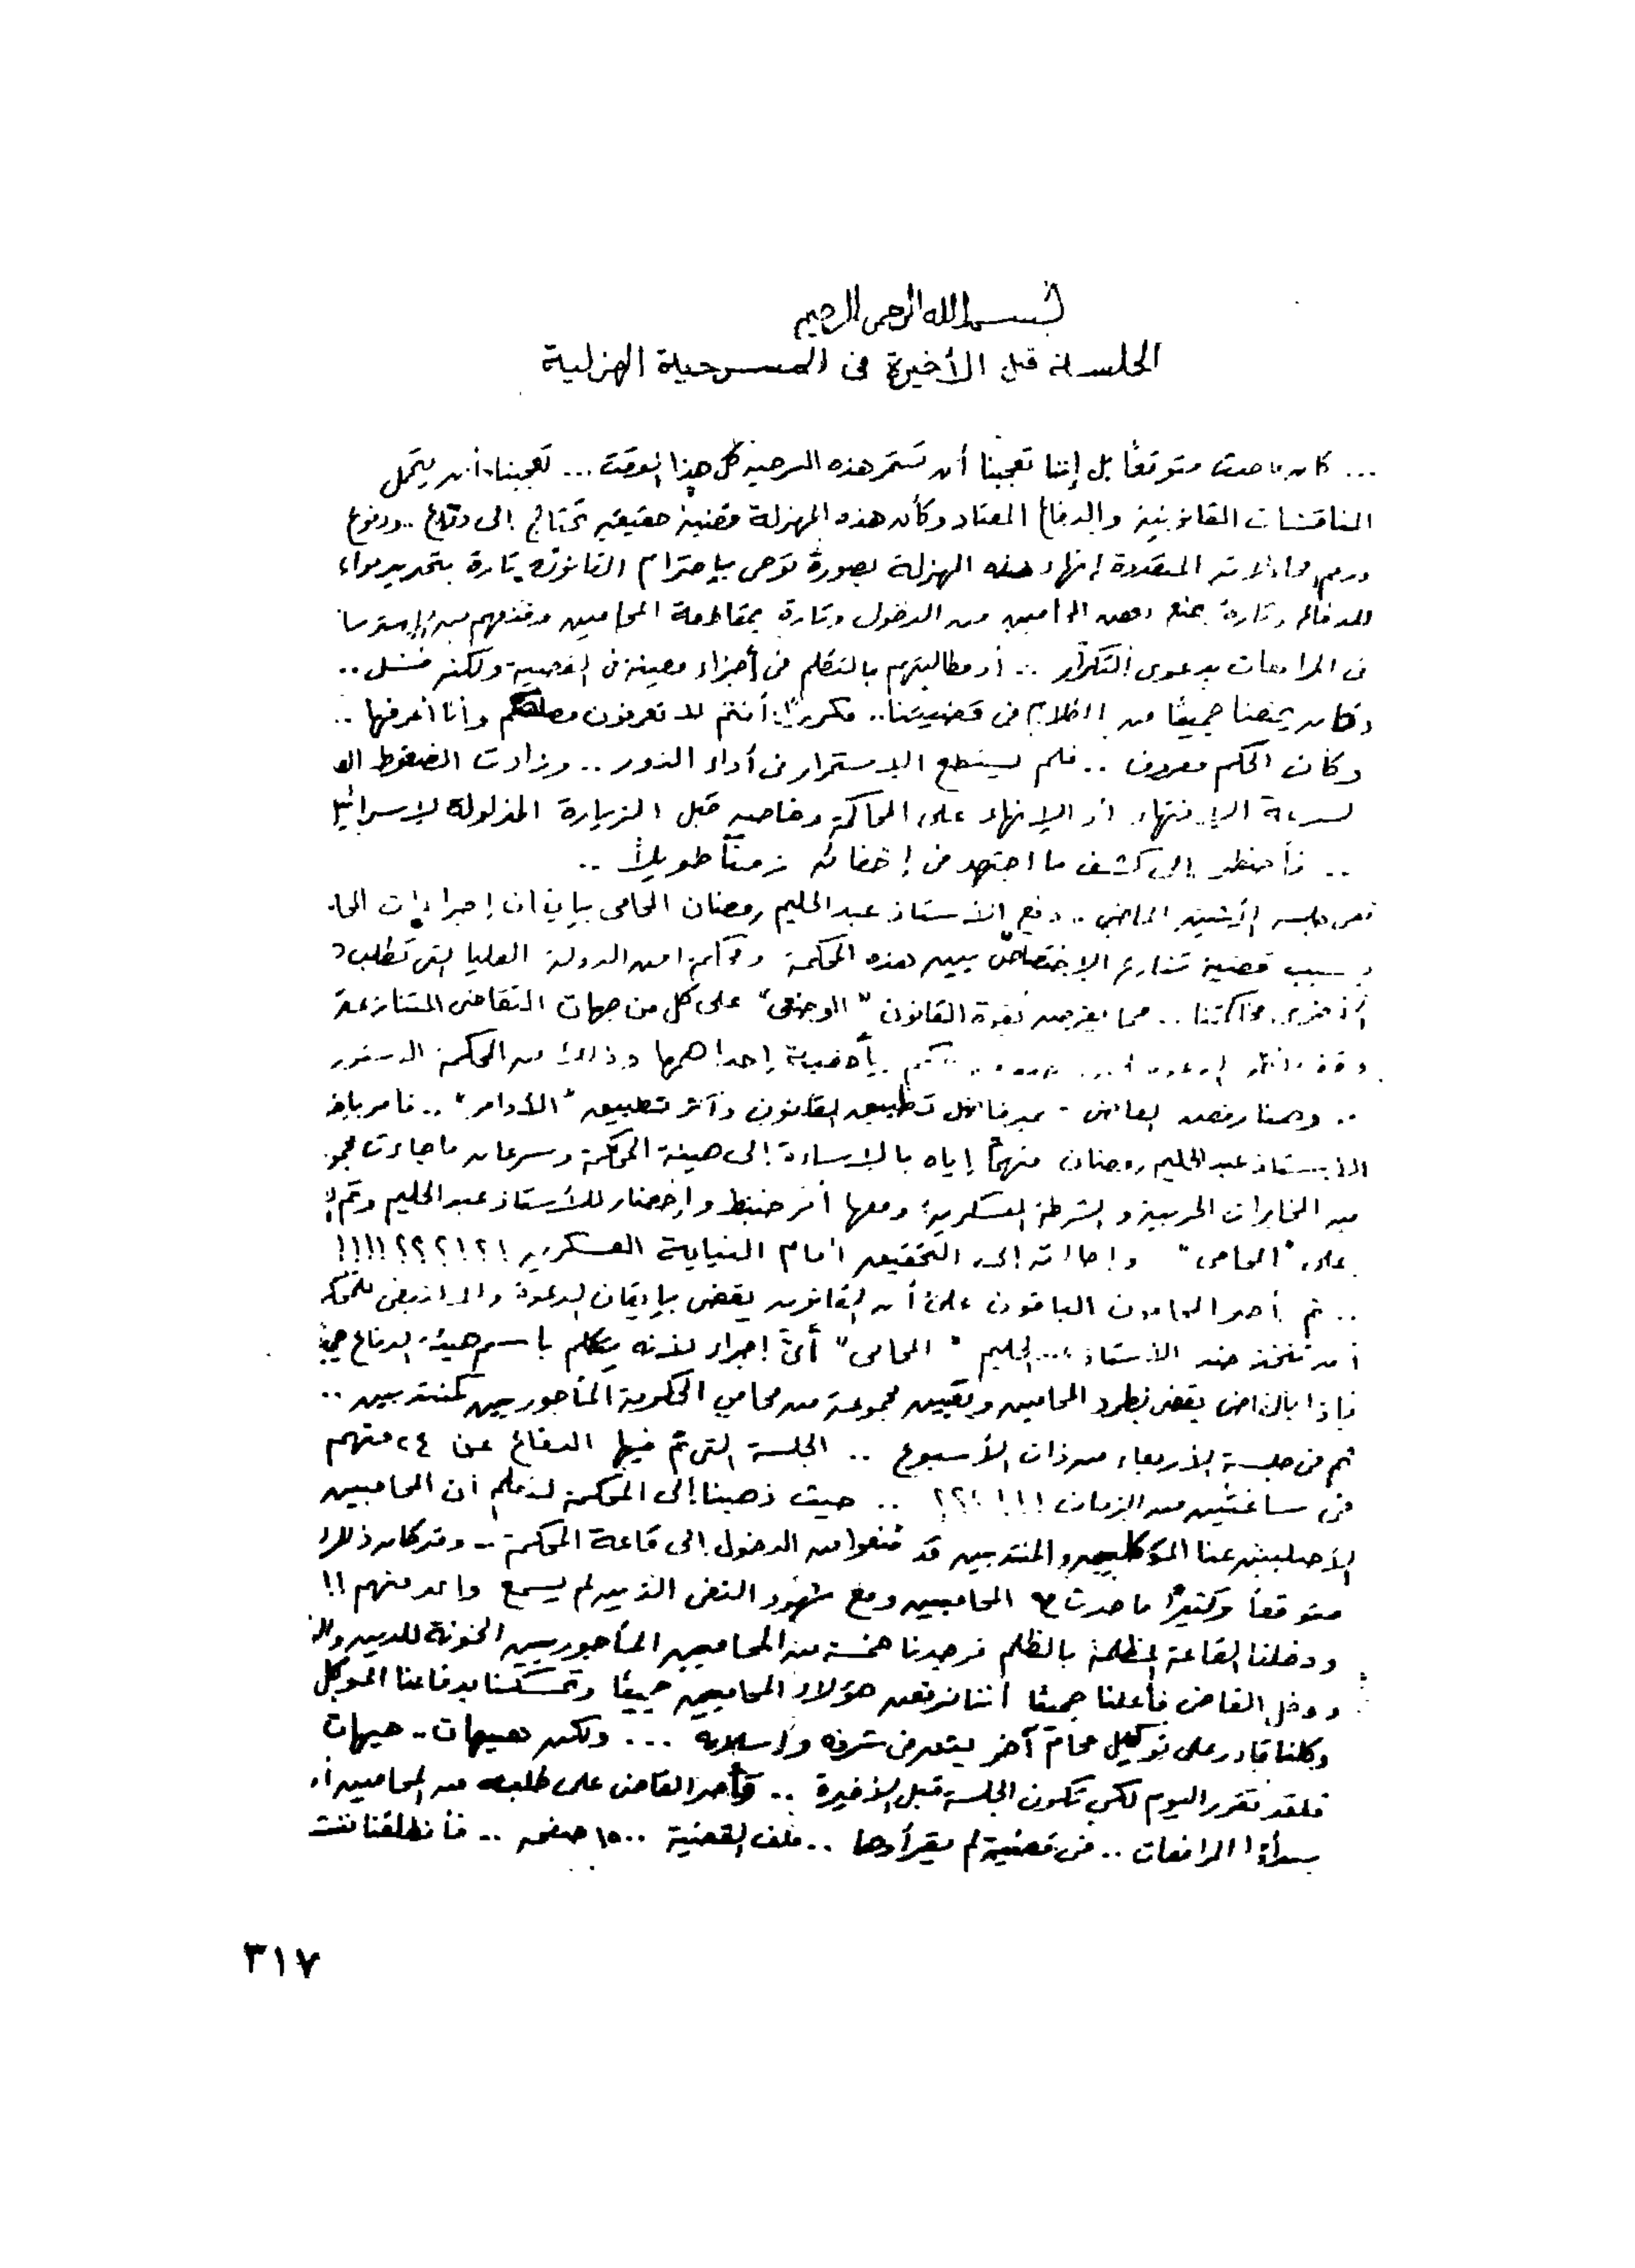 بسم الله الرحمن الرحيم
الجلسة قبل الأخيرة فى المسرحية الهزلية
... كان ما حدث متوقعاً بل إننا تعجبنا أن تستمر هذه المسرحية كل هذا الوقت ... تعجبنا أن يتحمل
المناقشات القانونية والدفاع المعتاد وكأن هذه المهزلة قضية حقيقية تحتاج إلى دفاع .. ودفوع
ورغم محاولاته المتعددة إنهاء هذه المهزلة بصورة توحى بإحترام القانون تارة بتحديد مواعيد
للدفاع وتارة بمنع بعض المحامين من الدخول وتارة بمقاطعة المحامين ومنعهم من الإسترسا
فى المرافعات بدعوى التكرار .. أو مطالبتهم بالتكلم فى أجزاء معينة فى القضية ولكنه فشل ..
وكان يمنعنا جميعاً من الكلام فى قضيتنا .. مكرراً: أنتم لا تعرفون مصلحتكم وأنا أعرفها ..
وكان الحكم معروف .. فلم يستطع الاستمرار فى أداء الدور .. وزادت الضغوط
لسرعة الانتهاء أو الإنهاء على المحاكمة وخاصة قبل الزيارة المذلولة لإسرائيل
.. فأضطر إلى كشف ما اجتهد فى إخفائه زمناً طويلاً ..
ففى جلسة الأثنين الماضى .. دفع الأستاذ عبد الحليم رمضان المحامى بإيقاف إجراءات
بسبب قضية تنازع الإختصاص بين هذه المحكمة ومحكمة امن الدولة العليا التى تطلب
محاكمتنا .. مما يفرض بقوة القانون "الوضعى" على كل من جهات التقاضى المتنازعة
وقف بأحقية إحداهما وذلك من المحكمة الدستور
.. وهنا رفض القاضى تطبيق القانون وآثر تطبيق "الأوامر" .. فأمر
الأستاذ عبد الحليم رمضان متهماً إياه بالإساءة إلى هيئة المحكمة وسرعان ما جاءت
من المخابرات الحربية والشرطة العسكرية ومعها أمر ضبط وإحضار للأستاذ عبد الحليم وتم
على "المحامى" وإحالته إلى التحقيق أمام النيابة العسكرية !؟!؟؟؟!!!!
.. ثم أصر المحامون الباقون على أن القانون يقضى بإيقاف الدعوة والا ينبغى للمحكمة
أن تتخذ ضد الأستاذ عبد الحليم "المحامى" أى إجراء لأنه يتكلم باسم هيئة الدفاع
فإذا بالقاضى يقضى بطرد المحامين وتعيين مجموعة من محامى الحكومة المأجورين كمنتدبين ..
ثم فى جلسة الأربعاء من ذات الأسبوع .. الجلسة التى تم فيها الدفاع عن ٢٤ متهم
فى ساعتين من الزمان !!!؟؟ .. حيث ذهبنا إلى المحكمة لنعلم أن المحامين
الأصليين عنا الموكلين والمنتدبين قد منعوا من الدخول إلى قاعة المحكمة .. وقد كان ذلك
متوقعاً وكثيراً ما حدث مع المحامين ومع شهود النفى الذين لم يسمع واحد منهم !!
ودخلنا القاعة المظلمة بالظلم فوجدنا خمسة من المحامين المأجورين الخونة للدين
ودخل القاضى فأعلنا جميعاً أننا نرفض هؤلاء المحامين جميعاً وتمسكنا بدفاعنا الموكل
وكلنا قادر على توكيل محام آخر يتعرض شرفه وإسلامه ... ولكن هيهات .. هيهات
فلقد تقرر اليوم لكى تكون الجلسة قبل الأخيرة .. وأصر القاضى على طلبه من المحامين أن
يبدأوا المرافعات .. فى قضية لم يقرأوها .. ملف القضية ١٥٠٠٠ صفحة .. فأنطلقنا
٣١٧